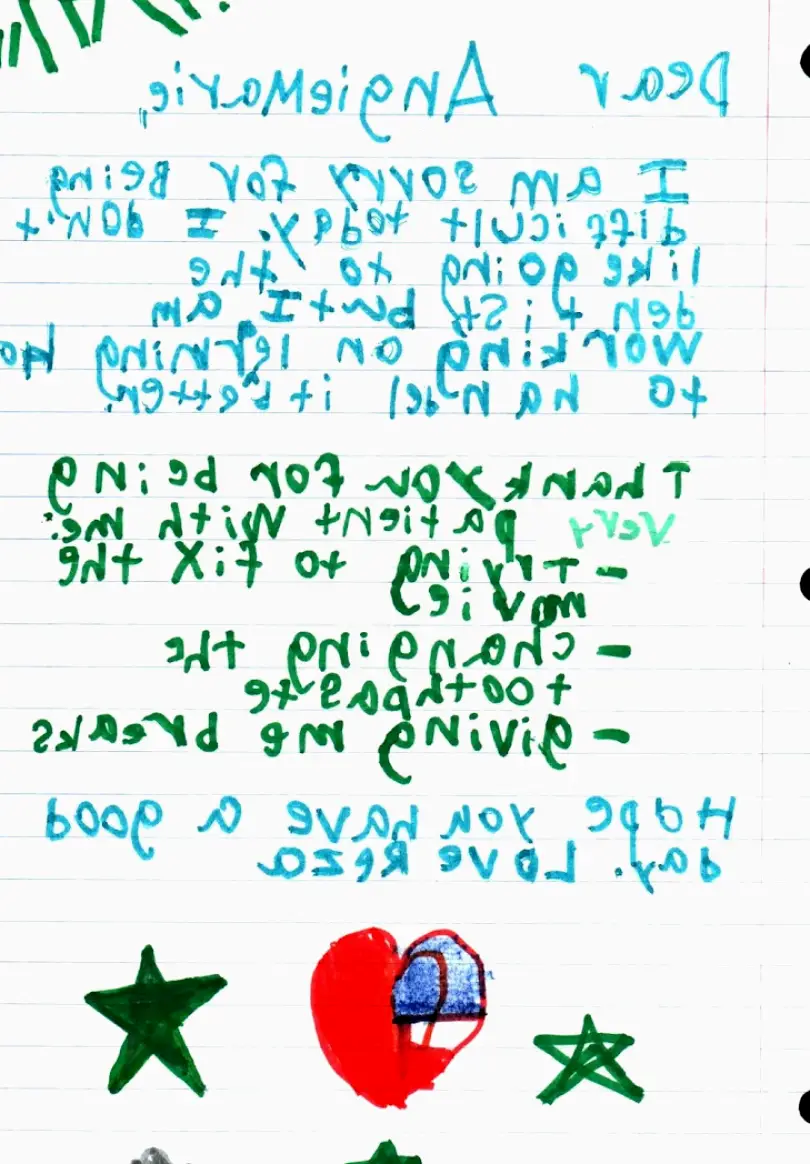 Dear AngieMarie,
I am sorry for Being
difficult today. I don't
like going to the
dentist but I am
working on lerning ho
to handel it better.
Thank you for being
very patient with me:
- Trying to fix the
movie
- changing the
toothpaste
- giving me breaks
Hope you have a good
day. Love Reza